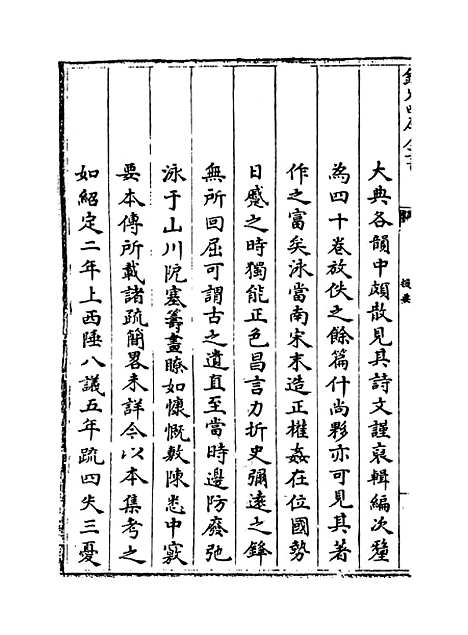 欽定四庫全書
提要
大典各韻中頗散見其詩文謹裒輯編次釐
為四十卷放佚之餘篇什尚夥亦可見其著
作之富矣泳當南宋末造正權姦在位國勢
日蹙之時獨能正色昌言力折史彌遠之鋒
無所回屈可謂古之遺直至當時邊防廢弛
泳于山川阨塞籌畫瞭如慷慨敷陳悉中窾
要本傳所載諸疏簡畧未詳今以本集考之
如紹定二年上西陲八議五年疏四失三憂